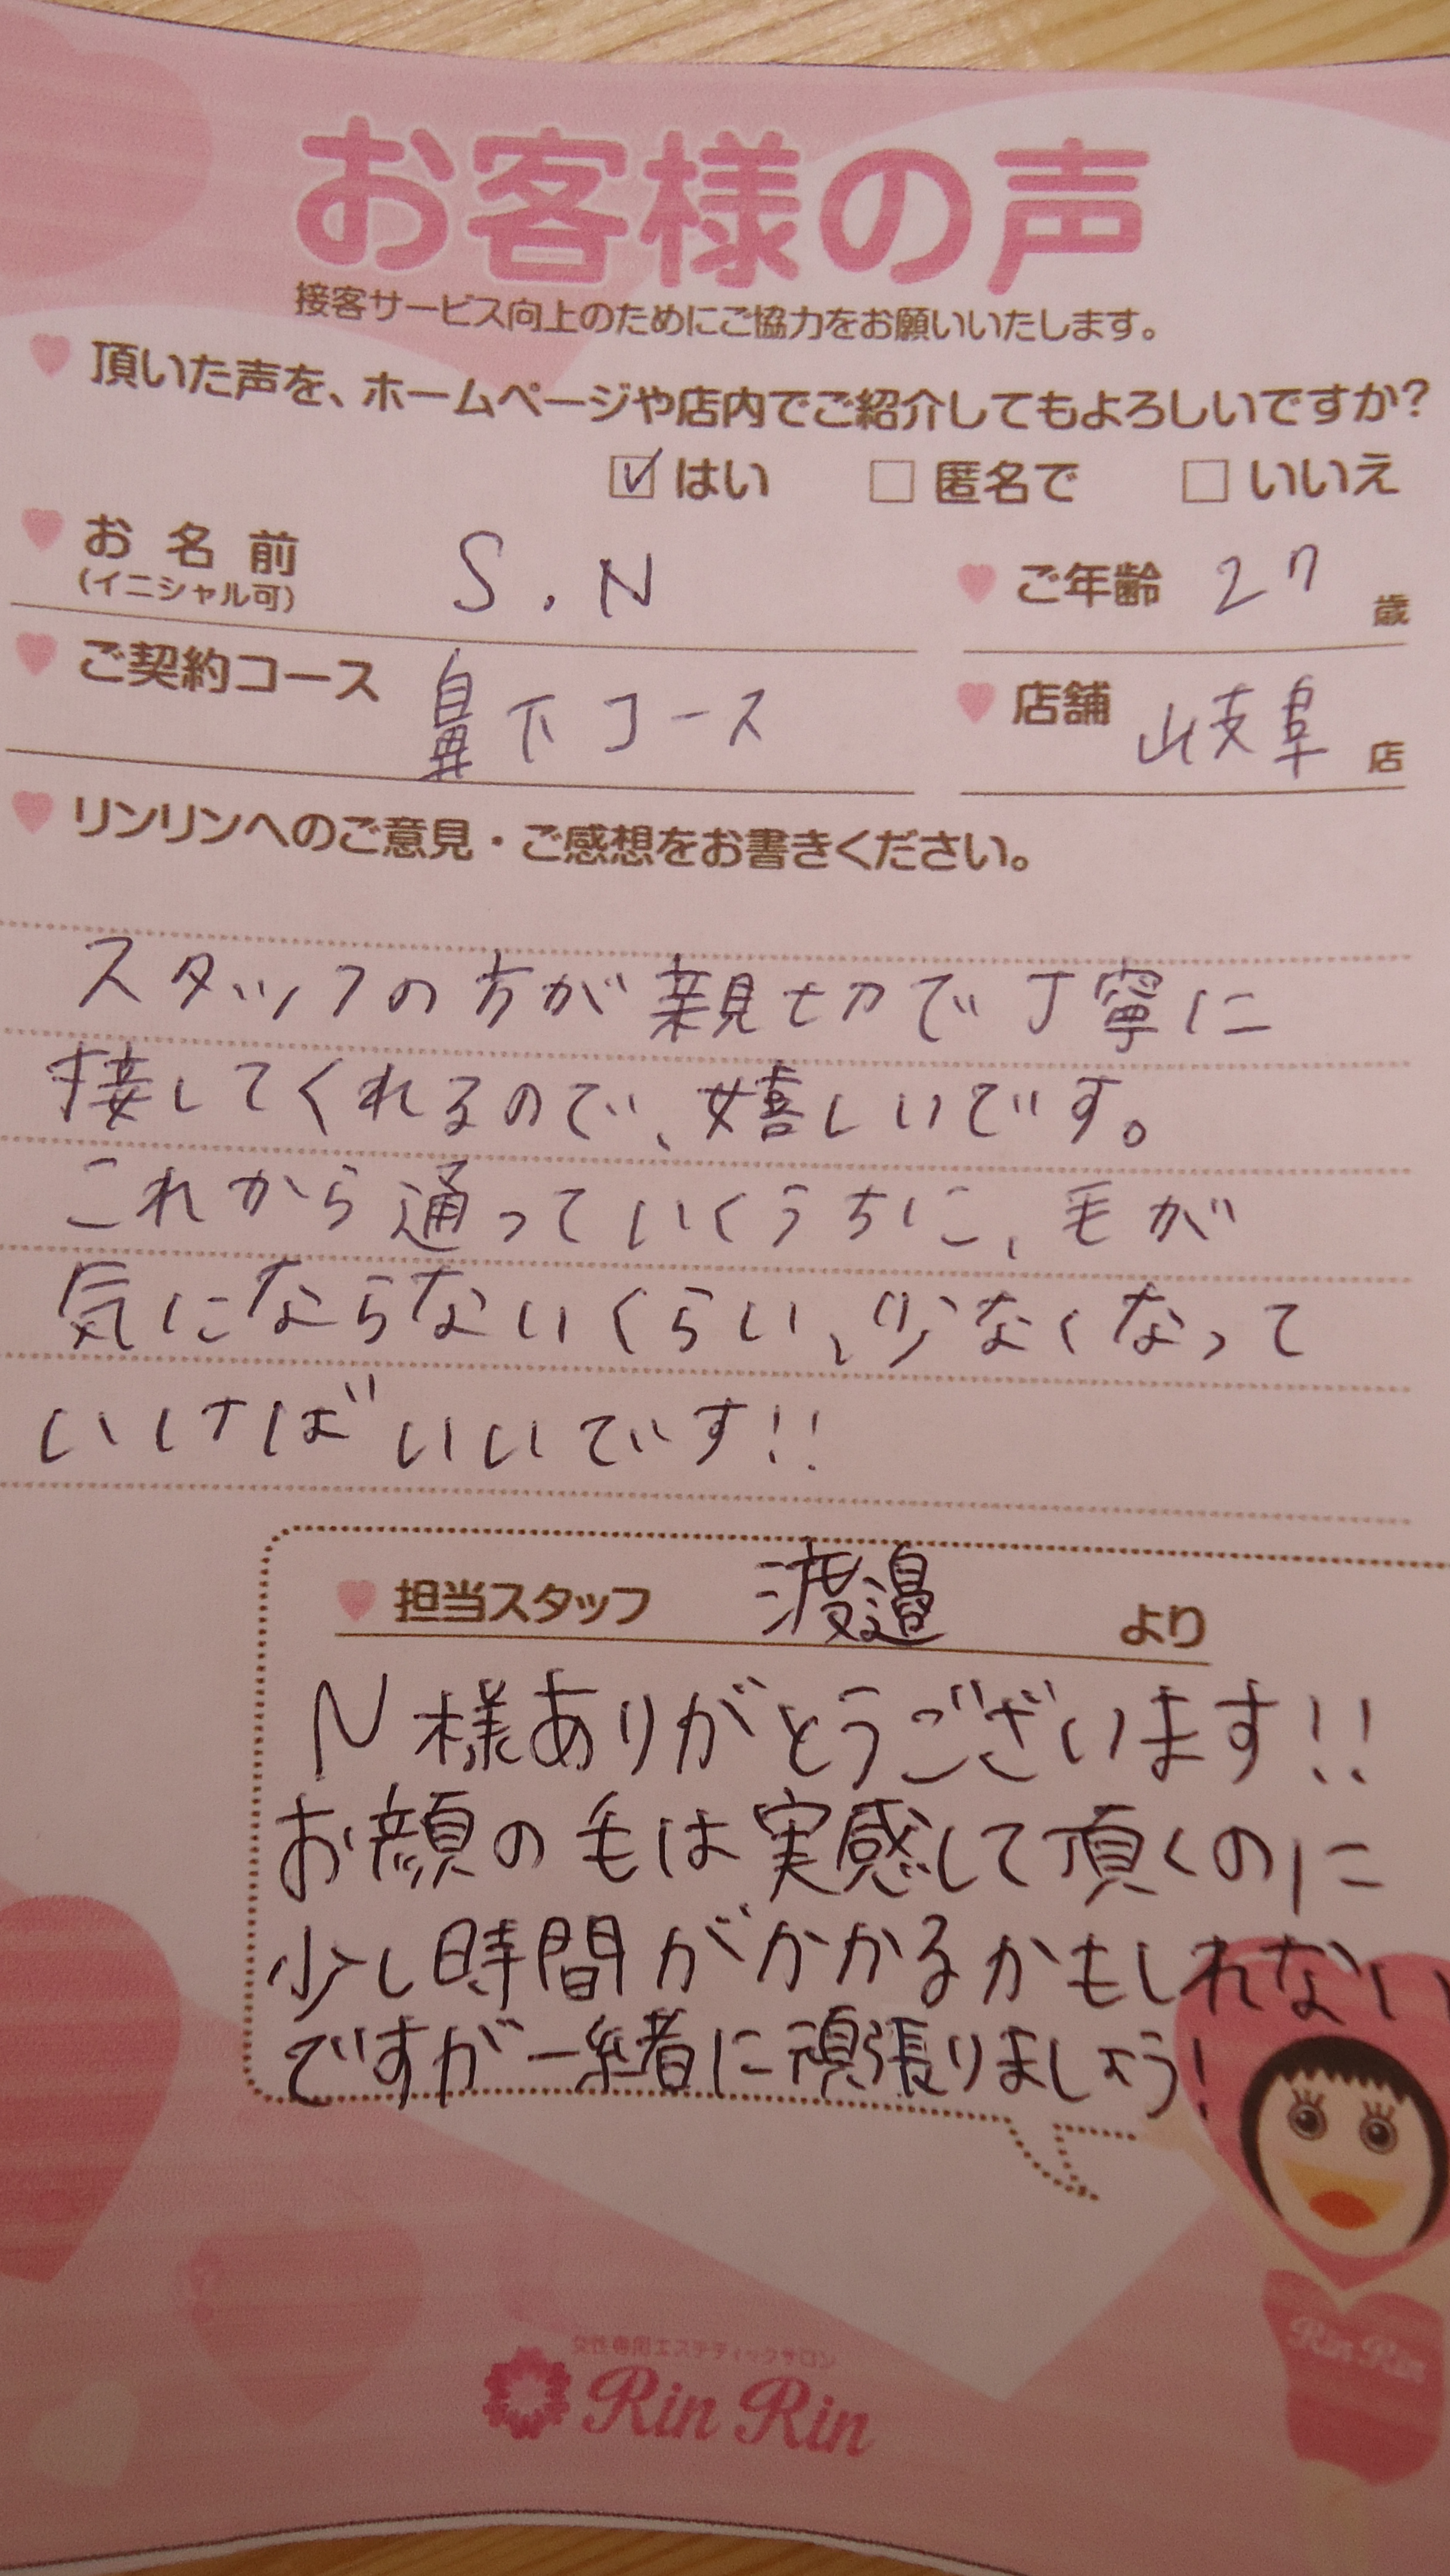 お客様の声
接客サービス向上のためにご協力をお願いいたします。
頂いた声を、ホームページや店内でご紹介してもよろしいですか?
☑はい □匿名で □いいえ
お名前 S.N ご年齢 27 歳
(イニシャル可)
ご契約コース 鼻下コース 店舗 岐阜 店
リンリンへのご意見・ご感想をお書きください。
スタッフの方が親切で丁寧に
接してくれるので、嬉しいです。
これから通っていくうちに、毛が
気にならないくらい、少なくなって
いけばいいです!!
担当スタッフ 渡邉 より
N様ありがとうございます!!
お顔の毛は実感して頂くのに
少し時間がかかるかもしれない
ですが一緒に頑張りましょう!
女性専用エステティックサロン
Rin Rin
Rin Rin